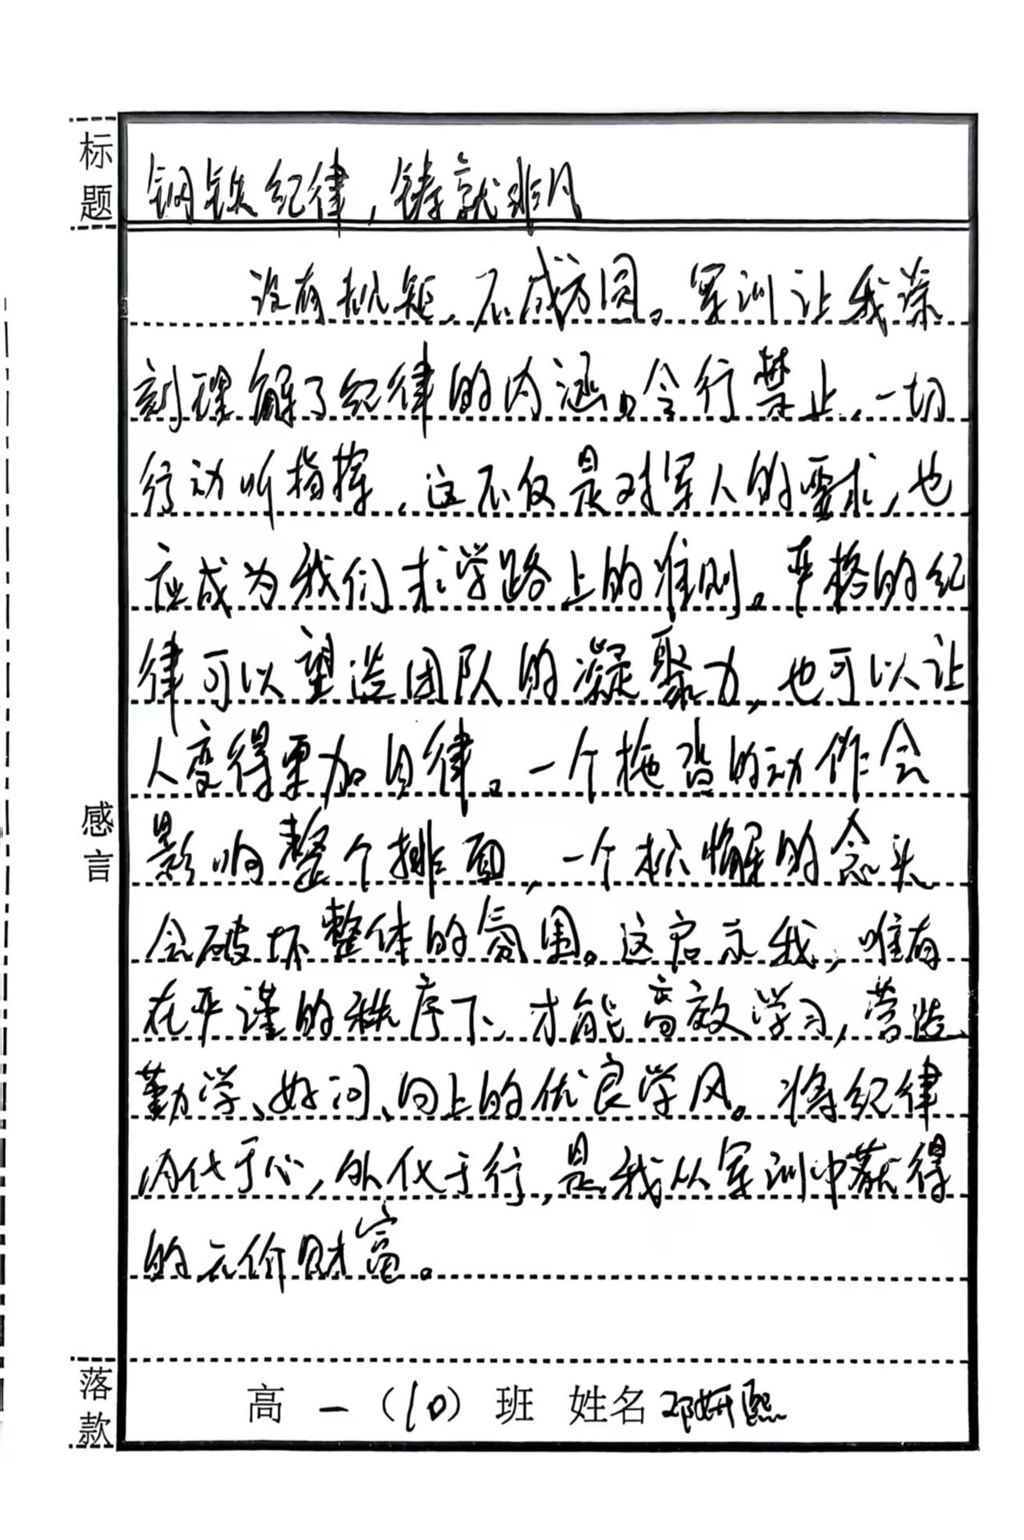 标题
钢铁纪律，铸就非凡
没有规矩，不成方圆。军训让我深
刻理解了纪律的内涵。令行禁止，一切
行动听指挥，这不仅是对军人的要求，也
应成为我们求学路上的准则。严格的纪
律可以塑造团队的凝聚力，也可以让
人变得更加自律。一个拖沓的动作会
影响整个排面，一个松懈的念头
会破坏整体的氛围。这启示我，唯有
在严谨的秩序下，才能高效学习，营造
勤学、好问、向上的优良学风。将纪律
内化于心，外化于行，是我从军训中获得
的无价财富。
感言
落款
高一（10）班 姓名 邓妍熙